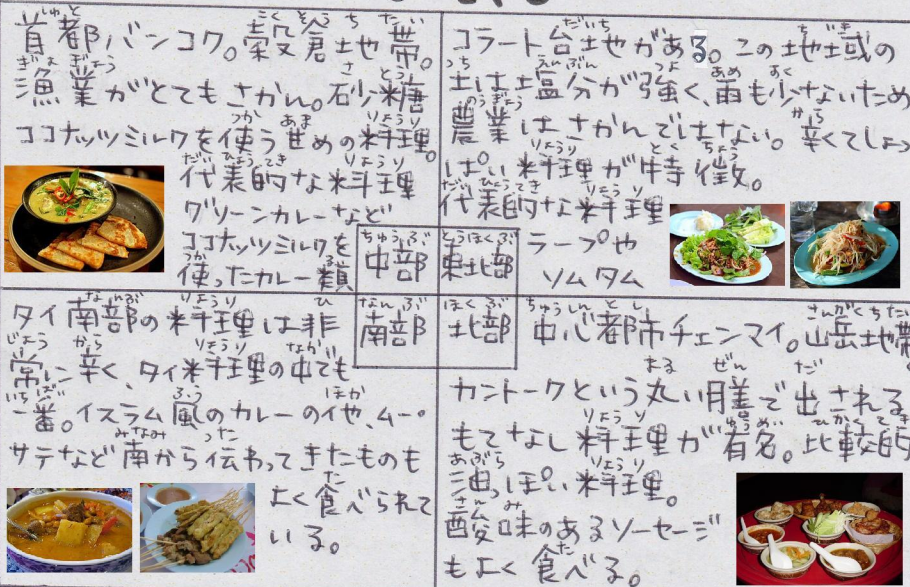 首都バンコク。穀倉地帯。
漁業がとてもさかん。砂糖
ココナッツミルクを使う甘めの料理。
代表的な料理
グリーンカレーなど
ココナッツミルクを
使ったカレー類
中部
コラート台地がある。この地域の
土は塩分が強く、雨も少ないため
農業はさかんではない。辛くてしょっ
ぱい料理が特徴。
代表的な料理
ラープや
ソムタム
東北部
タイ南部の料理は非
常に辛く、タイ料理の中でも
一番。イスラム風のカレーの他、ムー・
サテなど南から伝わってきたものも
よく食べられて
いる。
南部
北部
中心都市チェンマイ。山岳地帯
カントークという丸い膳で出される
もてなし料理が有名。比較的
油っぽい料理。
酸味のあるソーセージ
もよく食べる。